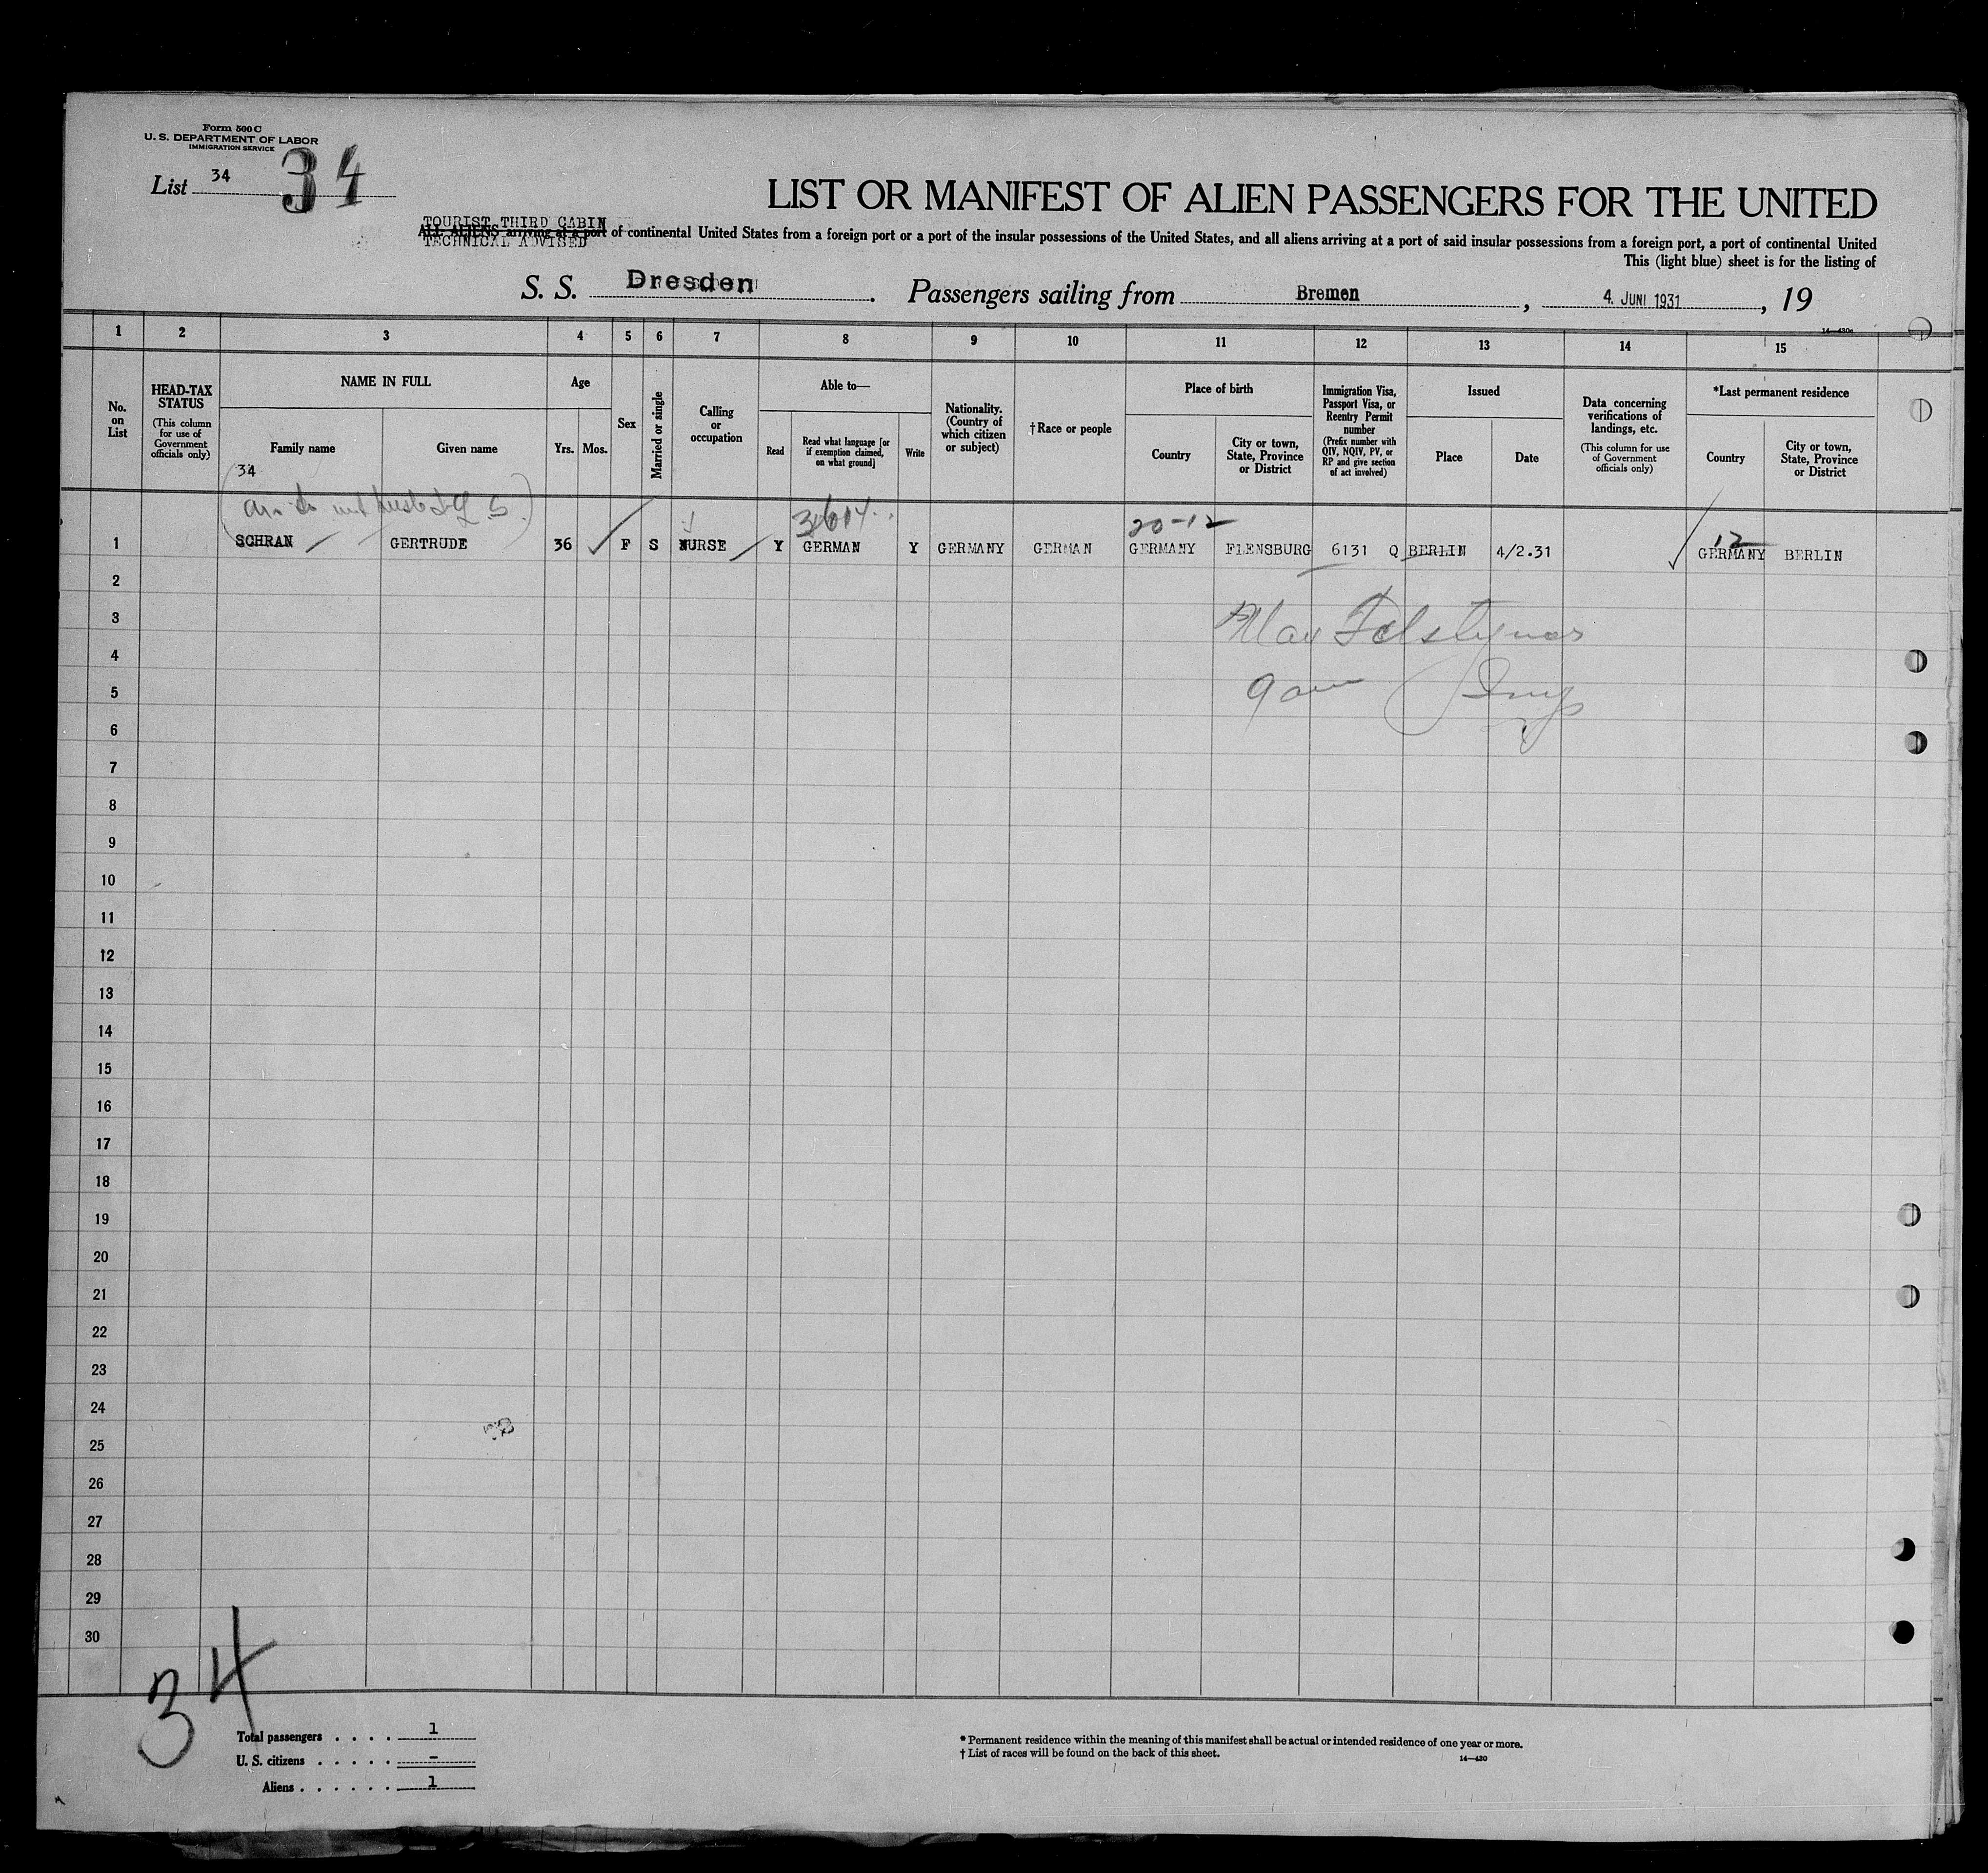 Form 500 C
U. S. DEPARTMENT OF LABOR
IMMIGRATION SERVICE
List 34
34
LIST OR MANIFEST OF ALIEN PASSENGERS FOR THE UNITED
TOURIST THIRD CABIN
ALL ALIENS arriving at a port of continental United States from a foreign port or a port of the insular possessions of the United States, and all aliens arriving at a port of said insular possessions from a foreign port, a port of continental United
TECHNICAL ADVISED
This (light blue) sheet is for the listing of
S. S. Dresden. Passengers sailing from Bremen, 4. JUNI 1931, 19
14—430a
1 2 3 4 5 6 7 8 9 10 11 12 13 14 15
No. on List
HEAD-TAX STATUS
(This column for use of Government officials only)
NAME IN FULL
Family name
Given name
Age
Yrs. Mos.
Sex
Married or single
Calling or occupation
Able to—
Read
Read what language [or if exemption claimed, on what ground]
Write
Nationality. (Country of which citizen or subject)
†Race or people
Place of birth
Country
City or town, State, Province or District
Immigration Visa, Passport Visa, or Reentry Permit number
(Prefix number with QIV, NQIV, PV, or RP and give section of act involved)
Issued
Place
Date
Data concerning verifications of landings, etc.
(This column for use of Government officials only)
*Last permanent residence
Country
City or town, State, Province or District
34
20-12
12
1 SCHRAN GERTRUDE 36 F S NURSE Y GERMAN Y GERMANY GERMAN GERMANY FLENSBURG 6131 Q BERLIN 4/2.31 GERMANY BERLIN
2
3
4
5
6
7
8
9
10
11
12
13
14
15
16
17
18
19
20
21
22
23
24
25
26
27
28
29
30
34
Total passengers . . . . 1
U. S. citizens . . . . . –
Aliens . . . . . . 1
* Permanent residence within the meaning of this manifest shall be actual or intended residence of one year or more.
† List of races will be found on the back of this sheet.
14—430